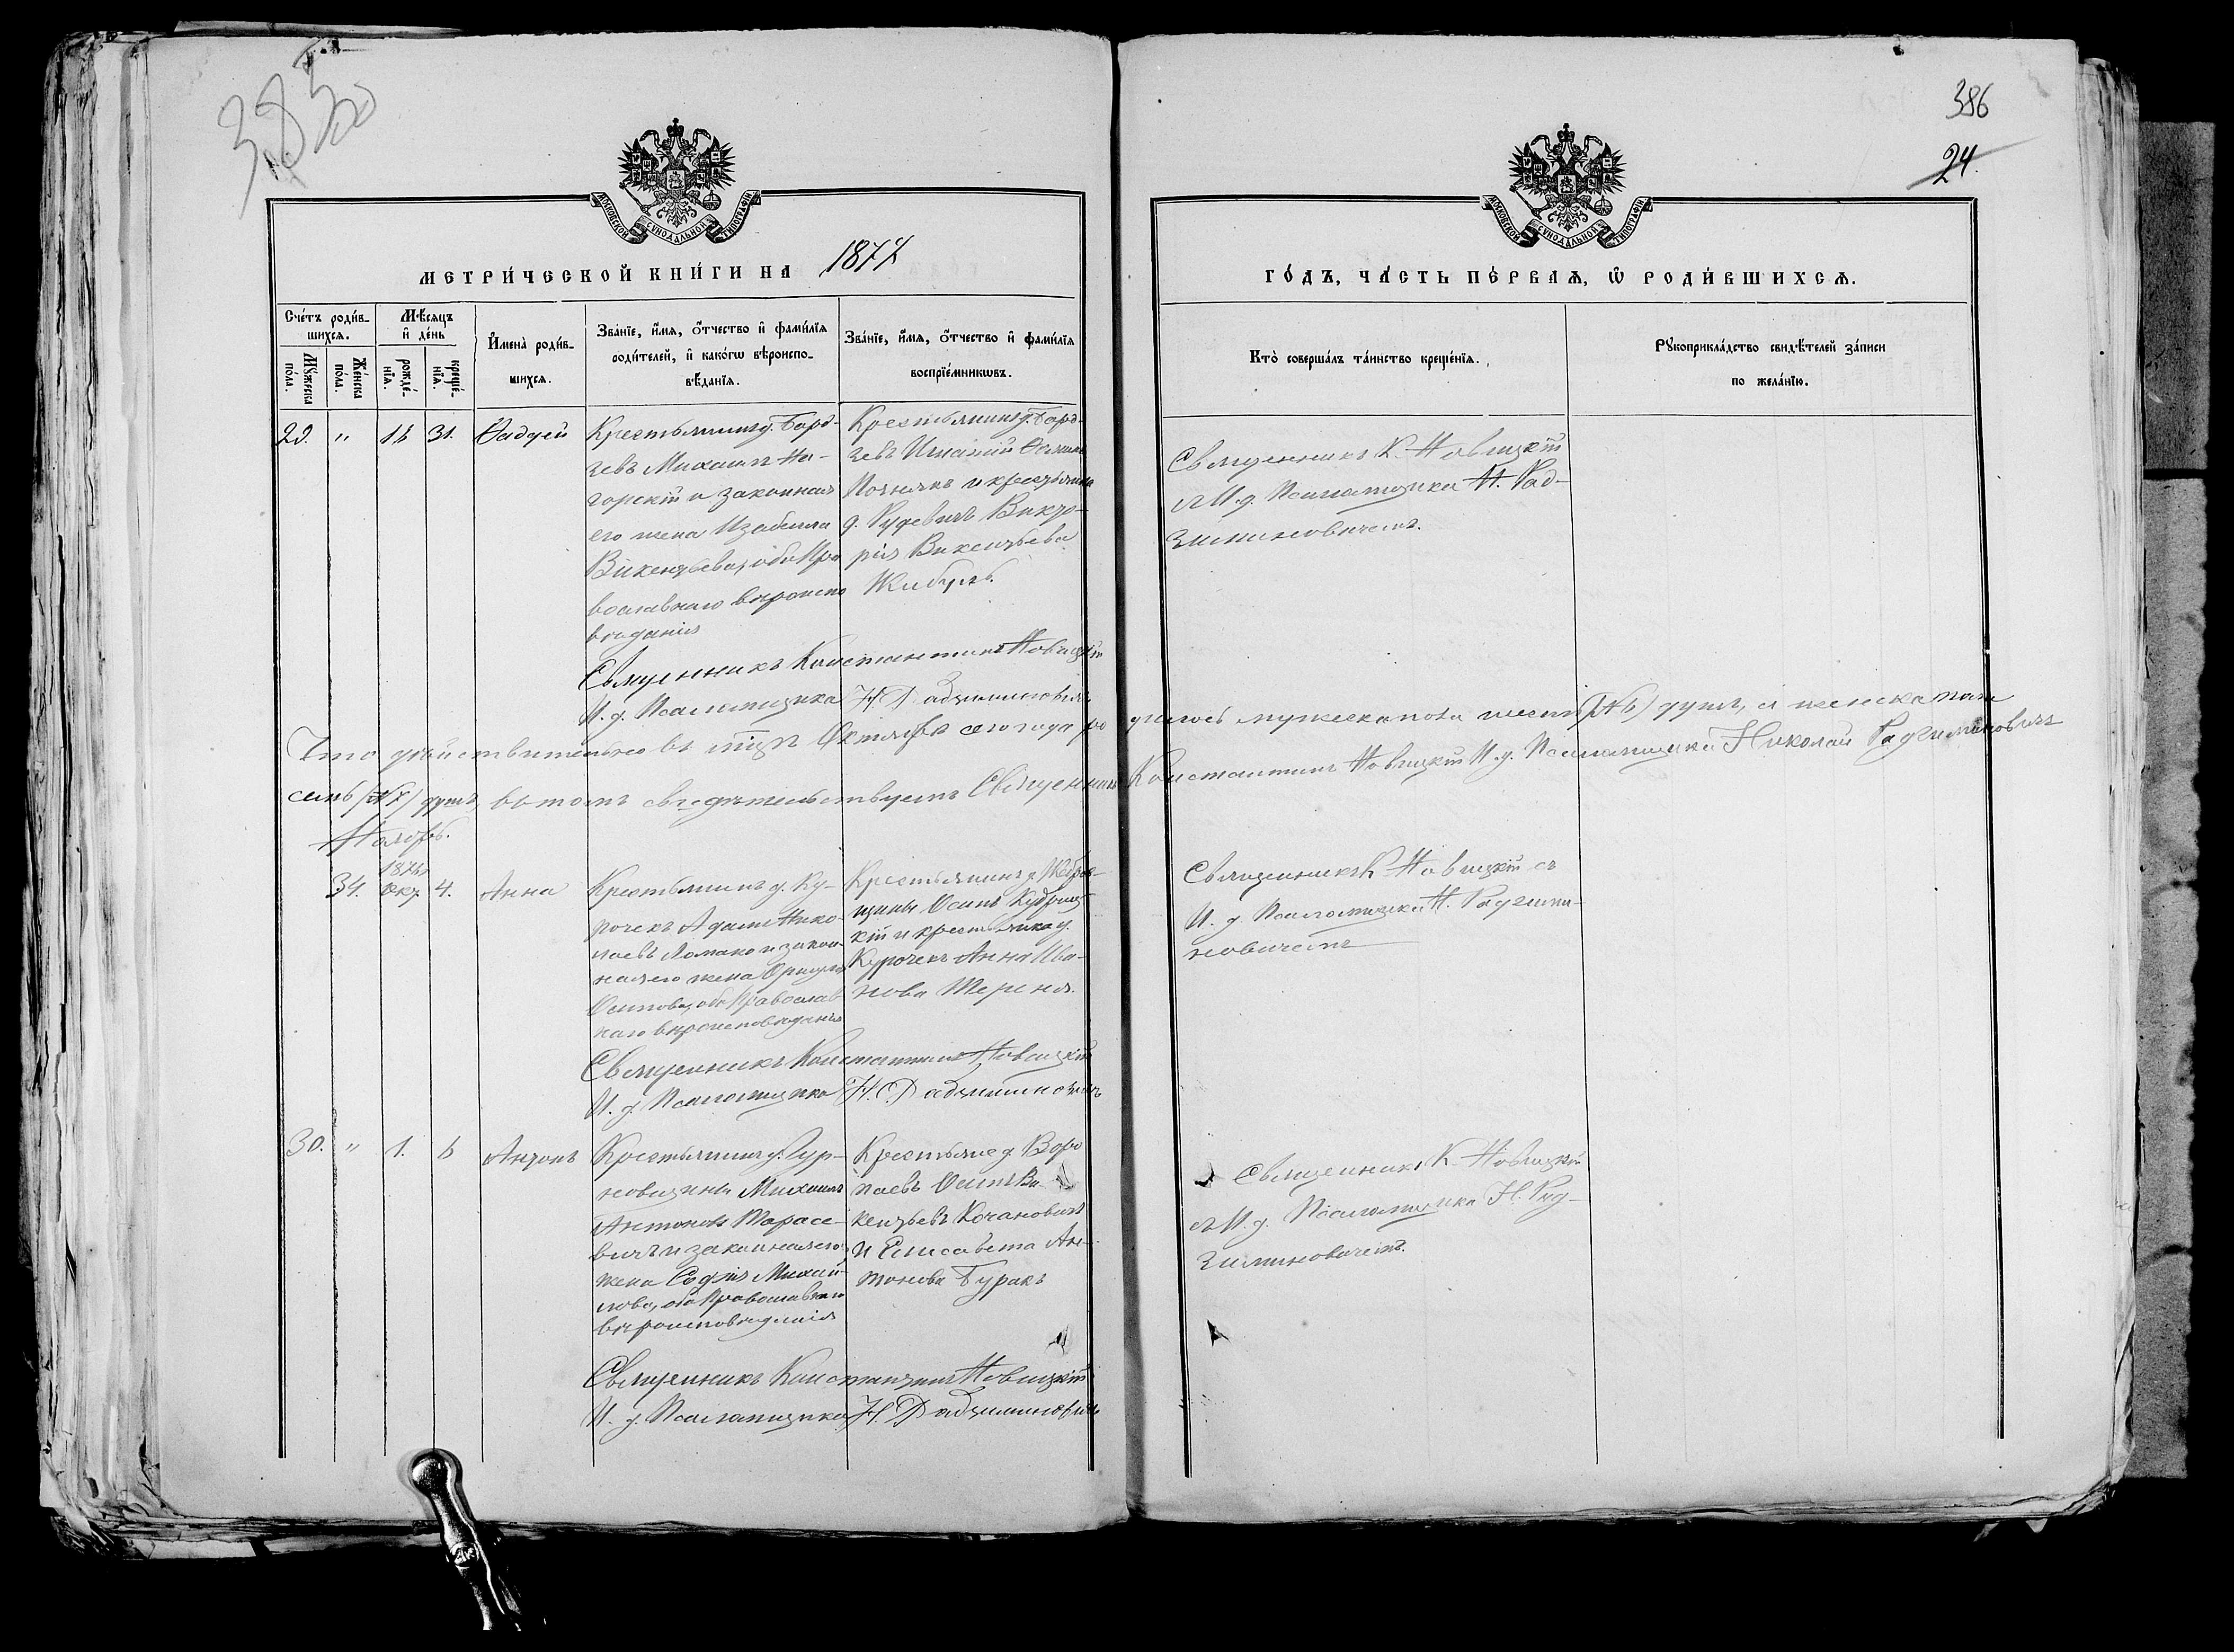 385
386
24.
МОСКОВСКОЙ СѴНОДАЛЬНОЙ ТИПОГРАФІИ
МОСКОВСКОЙ СѴНОДАЛЬНОЙ ТИПОГРАФІИ
МЕТРИ́ЧЕСКОЙ КНИ́ГИ НА 1877
ГО́ДЪ, ЧА́СТЬ ПЕ́РВАѦ, Ѡ РОДИ́ВШИХСѦ.
Сче́тъ роди́в-
шихсѧ.
Мꙋ́жеска по́ла.
Же́нска по́ла.
Мѣ́сѧцъ и де́нь
рожде́-нїѧ.
креще́-нїѧ.
И҆мена̀ роди́в-
шихсѧ.
Зва́нїе, и҆́мѧ, ѻ҆́тчество и҆ фами́лїѧ
роди́телей, и҆ како́гѡ вѣроиспо-
вѣ́данїѧ.
Зва́нїе, и҆́мѧ, ѻ҆́тчество и҆ фами́лїѧ
воспрїе́мникѡвъ.
Кто̀ соверша́лъ та́инство креще́нїѧ.
Рꙋкоприкла́дство свидѣ́телей за́писи
по жела́нїю.
29. " 18 31. Фаддей
Крестьянинъ д. Борд-
зевъ Михаилъ На-
горскій и законная
его жена Изабелла
Викентьева, оба Пра
вославнаго вѣроиспо
вѣданія
Крестьянинъ д. Борд-
зевъ Игнатій Осиповъ
и крестьянка
д. Рудевичъ Викто-
рія Викентьева
Жибуль.
Священникъ К. Новицкій
съ И. д. Псаломщика Н. Рад-
зиминовичемъ.
Священникъ Константинъ Новицкій
И. д. Псаломщика Н. Радзиминовичъ
Что дѣйствительно въ мцѣ Октябрѣ сего года ро дилось мужеска пола шесть (№ 6) душъ, а женска пола
семь (№ 7) душъ, въ томъ свѣдѣтельствуемъ Священникъ Константинъ Новицкій И. д. Псаломщика Николай Радзиминовичъ
Ноябрь.
34. Окт. 4. Анна
Крестьянинъ д. Ку-
рочекъ Адамъ Нико-
лаевъ Ломако и закон-
ная его жена
Осипова, оба Православ
наго вѣроисповѣданія
Крестьянинъ д. Жебров-
щины Осипъ Кудриц-
кій и крестьянка д.
Курочекъ Анна Ива-
нова Тереня.
Священникъ К. Новицкій съ
И. д. Псаломщика Н. Радзими-
новичемъ
Священникъ Константинъ Новицкій
И. д. Псаломщика Н. Радзиминовичъ
30. " 1. 6 Антонъ
Крестьянинъ д. Гур-
новщины Михаилъ
Антоновъ Тарасе-
вичъ и законная его
жена Софія Михай-
лова, оба Православнаго
вѣроисповѣданія
Крестьяне д. Воро
паевъ Осипъ Ви-
кентьевъ Кочановичъ
и Елисавета Ан-
тонова Буракъ
Священникъ К. Новицкій
съ И. д. Псаломщика Н. Рад-
зиминовичемъ.
Священникъ Константинъ Новицкій
И. д. Псаломщика Н. Радзиминовичъ